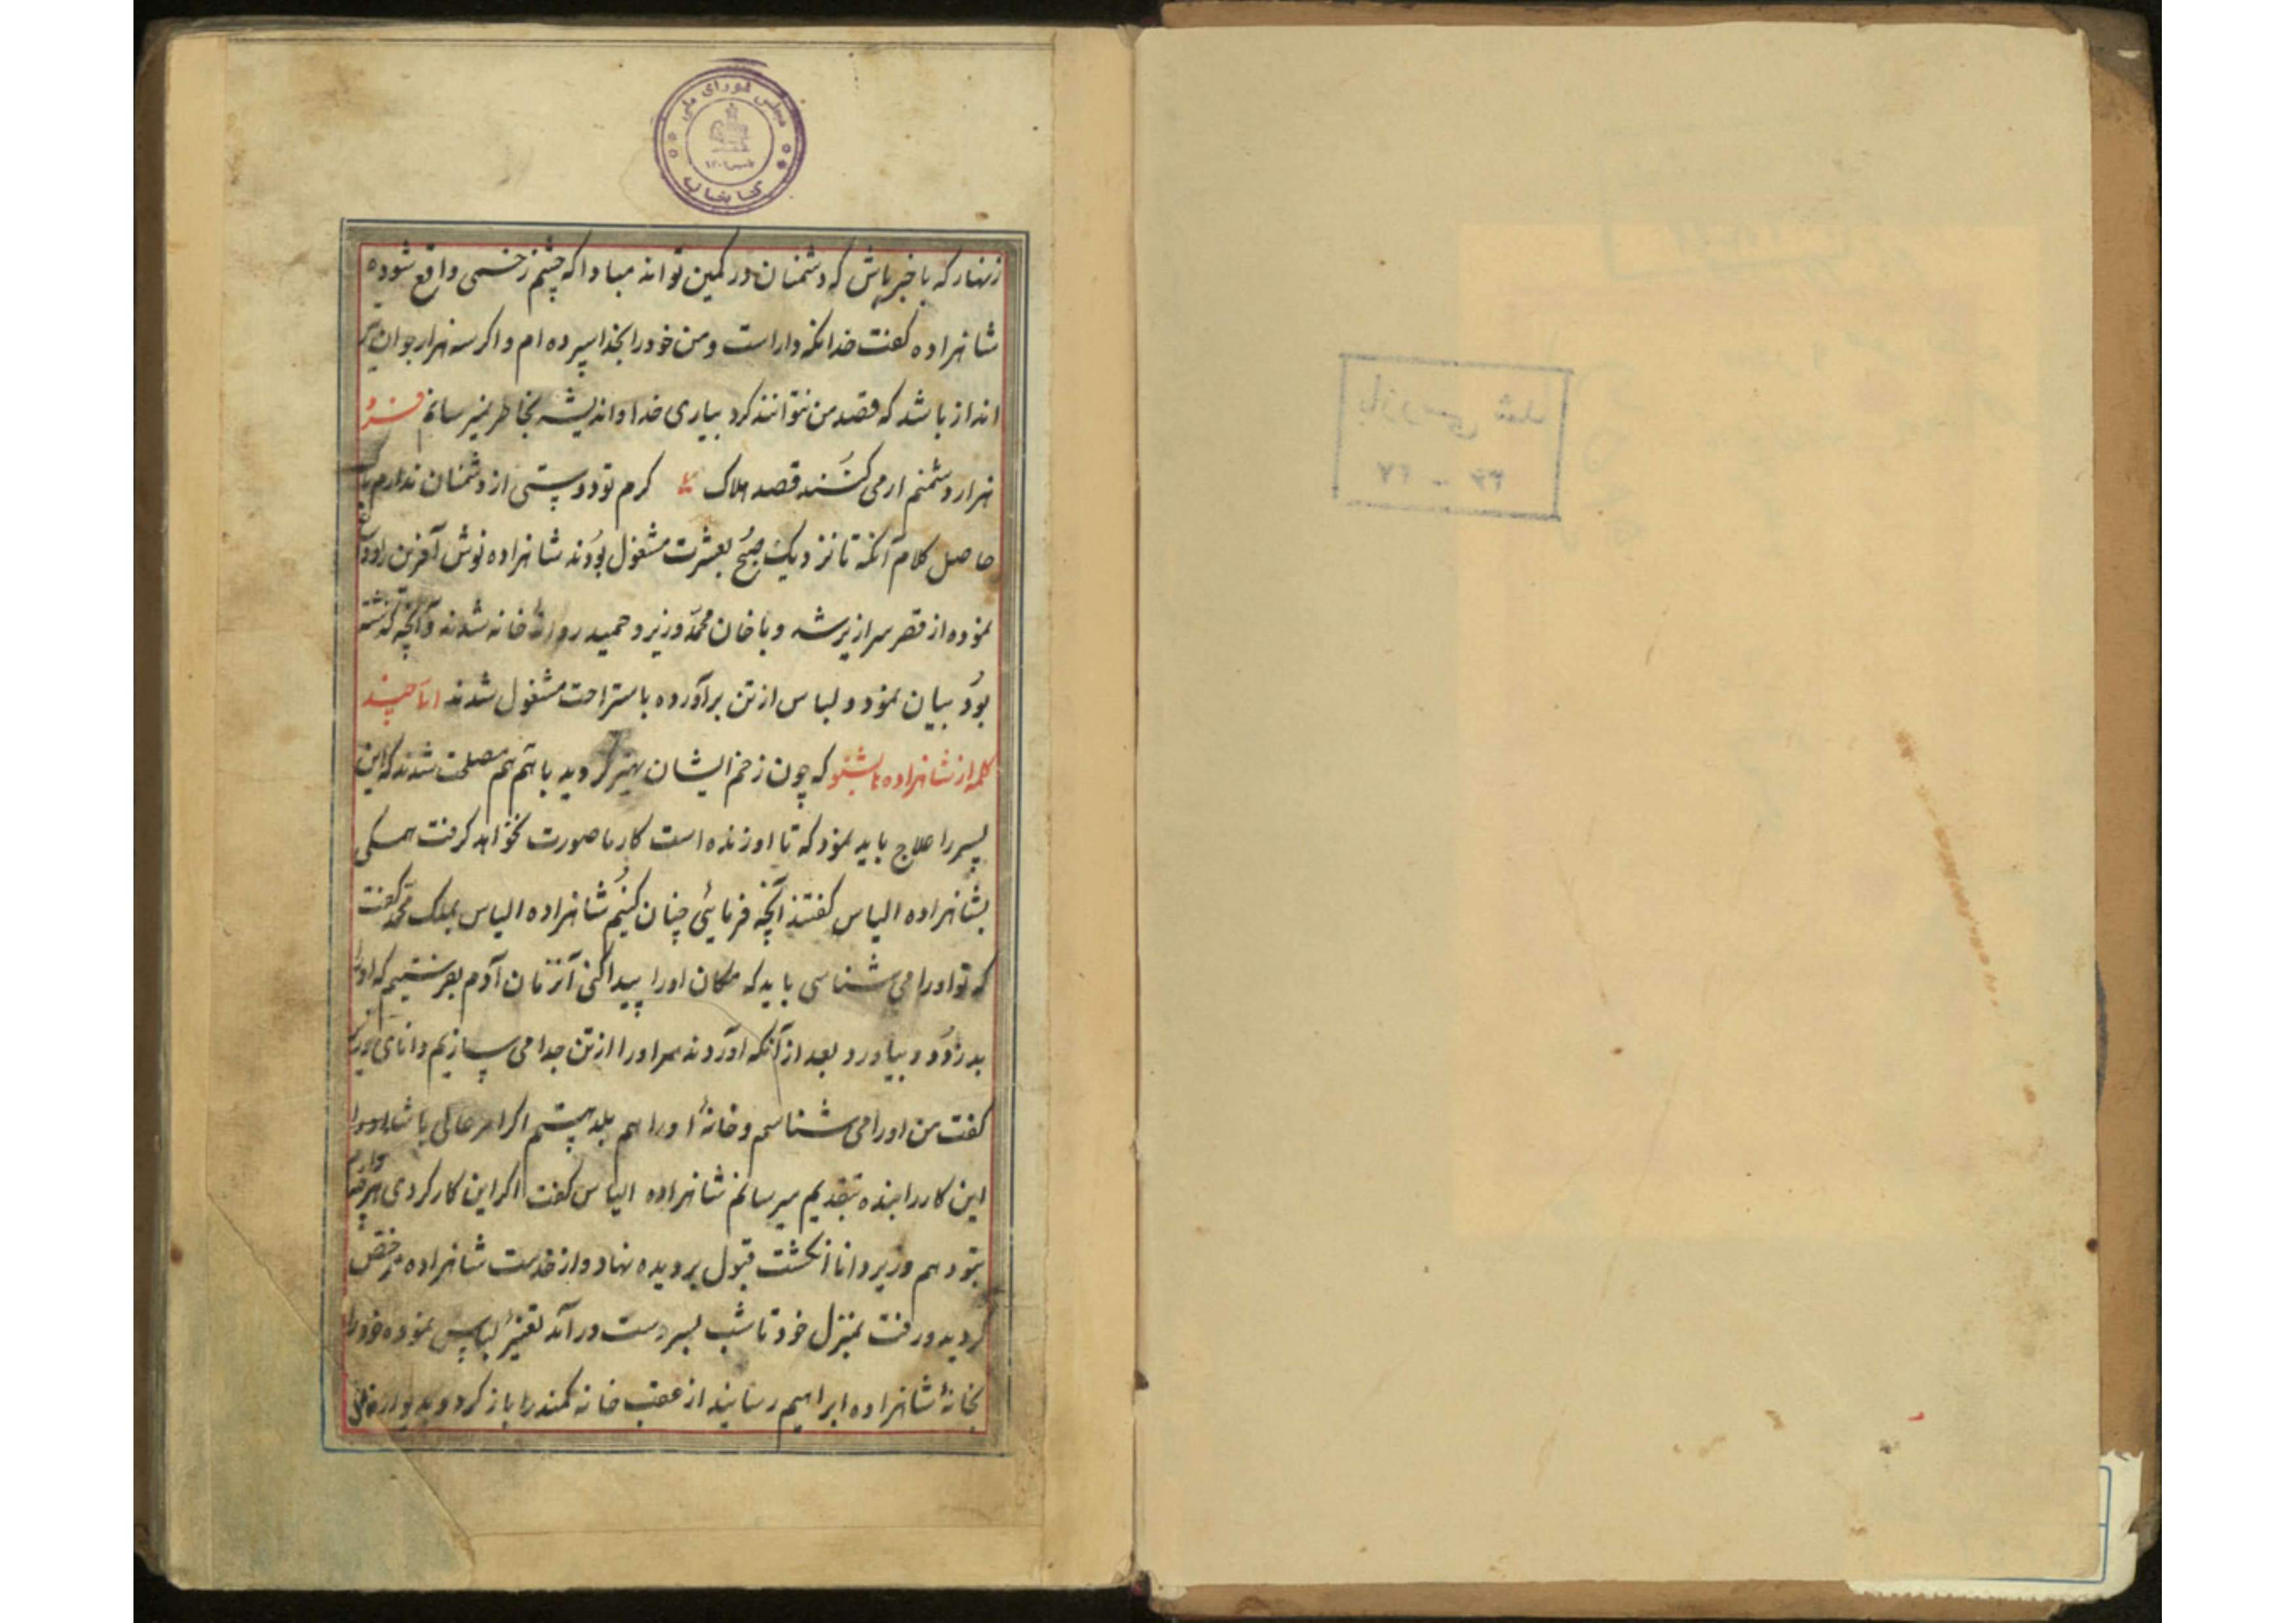 مجلس شورای ملی
کتابخانه
زنهار که با خبر باش که دشمنان در کمین تو اند مبادا که چشم زخمی واقع شود
شاهزاده گفت خدا نگه دار است و من خود را بخدا سپرده ام و اگر سه هزار جوان
انداز باشد که قصد من نتوانند کرد بیاری خدا و اندیشه بخاطر نمیرسانم فرد
هزار دشمنم ار می کنند قصد هلاک کرم تو دوستی از دشمنان ندارم باک
حاصل کلام آنکه تا نزدیک صبح بعشرت مشغول بودند شاهزاده نوش آفرین را وداع
نموده از قصر سرازیر شد و با خان محمد وزیر و حمید روانهٔ خانه شدند و آنچه گذشته
بود بیان نمود و لباس از تن برآورده باستراحت مشغول شدند اما چند
کلمه از شاهزاده ها بشنو که چون زخم ایشان بهتر گردید با هم هم مصلحت شدند که این
پسر را علاج باید نمود که تا او زنده است کار ما صورت نخواهد گرفت همگی
بشاهزاده الیاس گفتند آنچه فرمائی چنان کنیم شاهزاده الیاس بملک محمد گفت
که تو او را می شناسی باید که مکان او را پیدا کنی آنزمان آدم بفرستیم که او را
بدزدد و بیاورد بعد از آنکه آوردند سر او را از تن جدا می سازیم دانای وزیر
گفت من او را می شناسم و خانهٔ او را هم بلد هستم اگر امر عالی باشد
این کار را بنده بتقدیم میرسانم شاهزاده الیاس گفت اگر این کار کردی هر چه خواهی
بتو دهم وزیر دانا انگشت قبول بر دیده نهاد و از خدمت شاهزاده مرخص
گردید و رفت بمنزل خود تا شب بسر دست درآمد تغییر لباس نموده خود را
بخانهٔ شاهزاده ابراهیم رسانید از عقب خانه کمند را باز کرد و بدیوار
بازرسی شد
۳۶ - ۳۷